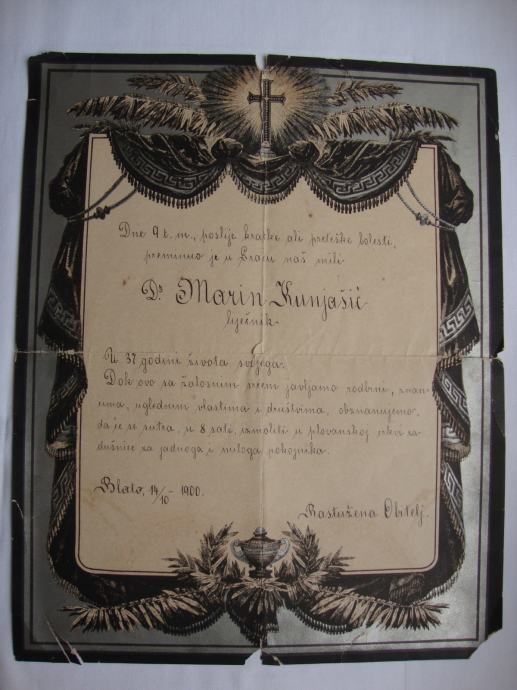 Dne 9 t. m., poslije kratke ali preteške bolesti,
preminuo je u Gracu naš mili
Dr Marin Kunjašić
liječnik
U 37 godini života svojega.
Dok ovo sa žalosnim srcem javljamo rodbini, znan-
cima, uglednim vlastima i društvima, obznanujemo,
da je se sutra, u 8 sati, izmoliti u plovanskoj crkvi za-
dušnice za jadnoga i miloga pokojnika.
Blato, 14/10 - 1900.
Rastužena Obitelj.